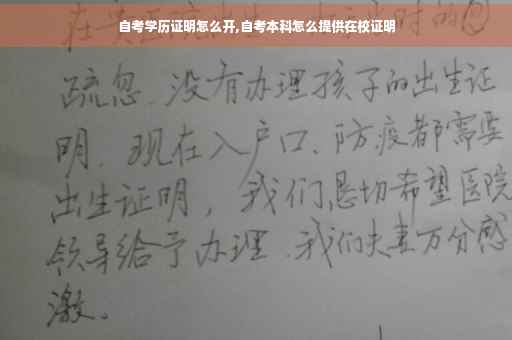 自考学历证明怎么开,自考本科怎么提供在校证明
时的
疏忽、没有办理孩子的出生证
明、现在入户口、防疫都需要
出生证明，我们恳切希望医院
领导给予办理、我们夫妻万分感
激。